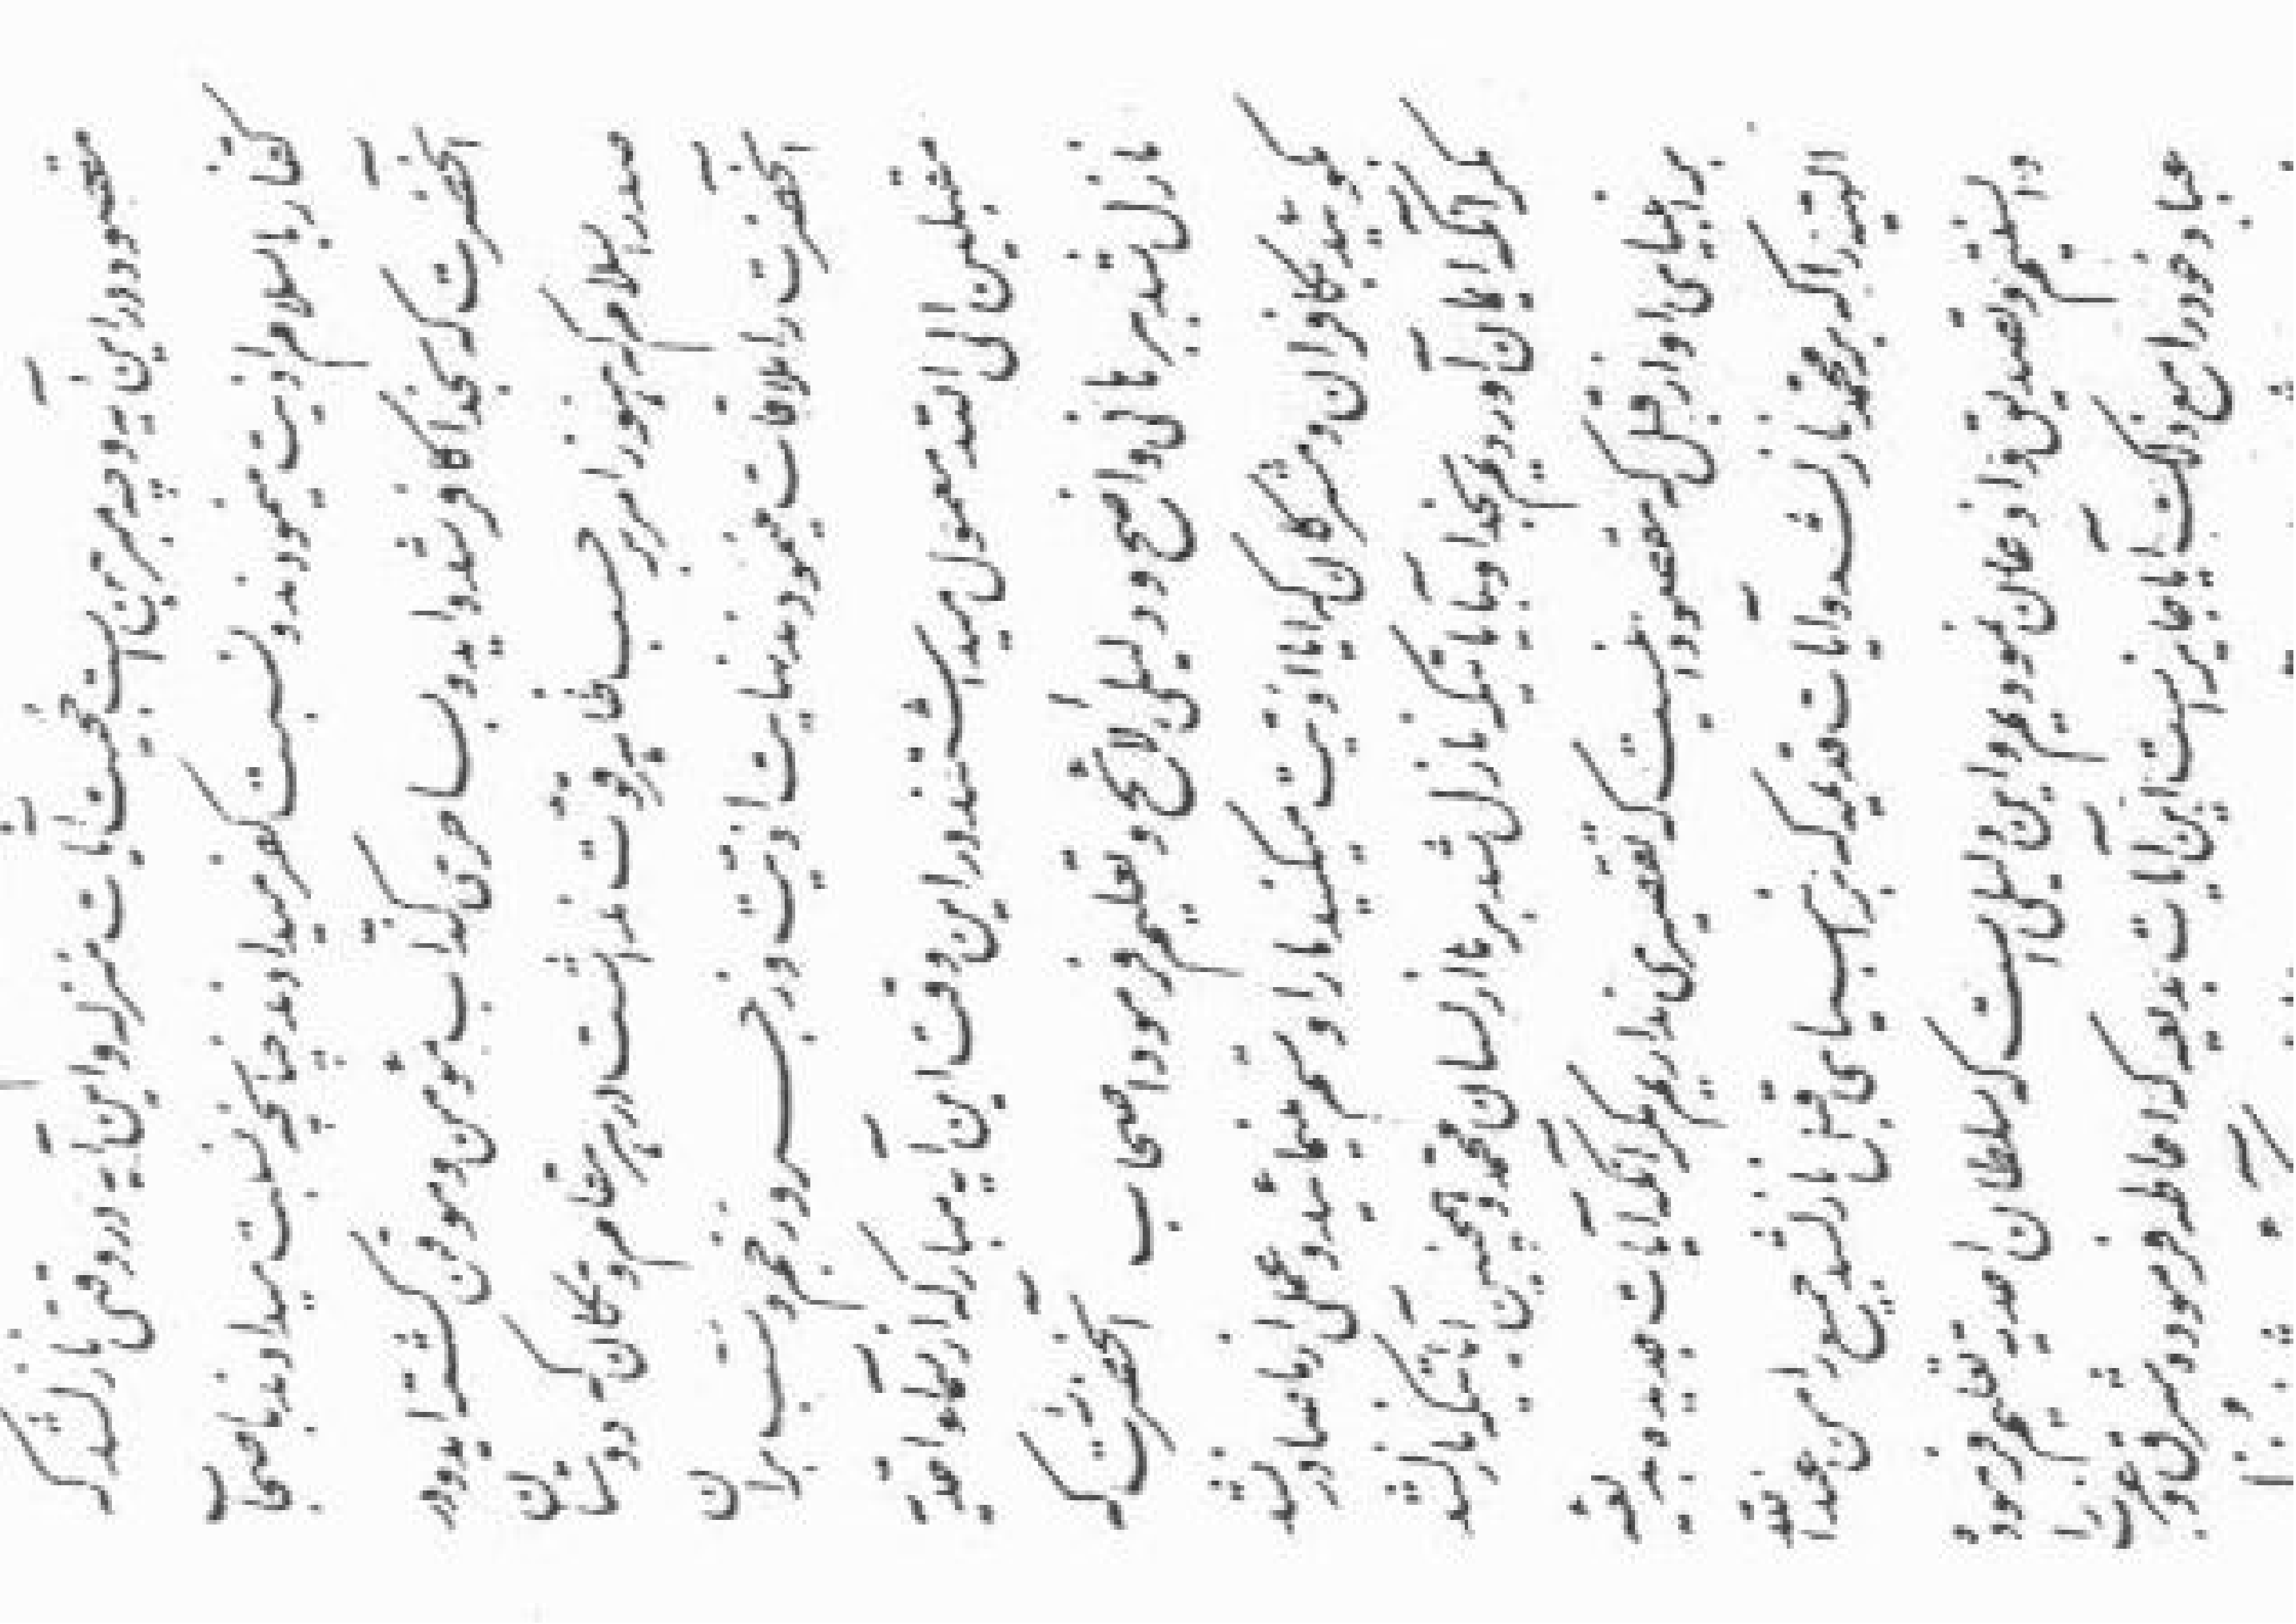 مقصود در این آیه و چه مرتبه است حجّیت آیات منزله و این آیه در وقتی نازل شد که
کفّار باسلام اذیت مینمودند و نسبت کفر میدادند چنانچه نسبت میدادند باصحاب
آنحضرت که بخدا کافر شده‌اید و بساحری کذّاب مؤمن و موقن گشته‌اید و در
صدر اسلام که هنوز امر بر حسب ظاهر قوّت نداشت در هر مقام و مکان که دوستان
آنحضرت را ملاقات مینمودند نهایت اذیت و زجر و رجم و سب بر آن
مقبلین الی الله معمول میداشتند در این وقت این آیه مبارکه از سماء احدیّه
نازل شد ببرهانی واضح و دلیلی لائح و تعلیم فرمود اصحاب آنحضرت که
بگوئید بکافران و مشرکان که ایا اذیت میکنید ما را و ستم مینمائید و عملی از ما صادر نشده
مگر آنکه ایمان آوردیم بخدا و بآیاتیکه نازل شد بر ما از لسان محمد و همچنین آیاتیکه نازل شد
بر انبیای او از قبل که مقصود اینست که تقصیری نداریم مگر آنکه آیات جدیده بدیعه
الهیّه را که بر محمد نازل شد و آیات قدیمه که بر انبیای قبل نازل شد جمیع را من عند الله
دانستیم و تصدیق و اذعان نمودیم و این دلیلی است که سلطان احدیه تعلیم فرموده
عباد خود را مع ذلک آیا جایز است این آیات بدیعه که احاطه فرموده شرق و غرب را